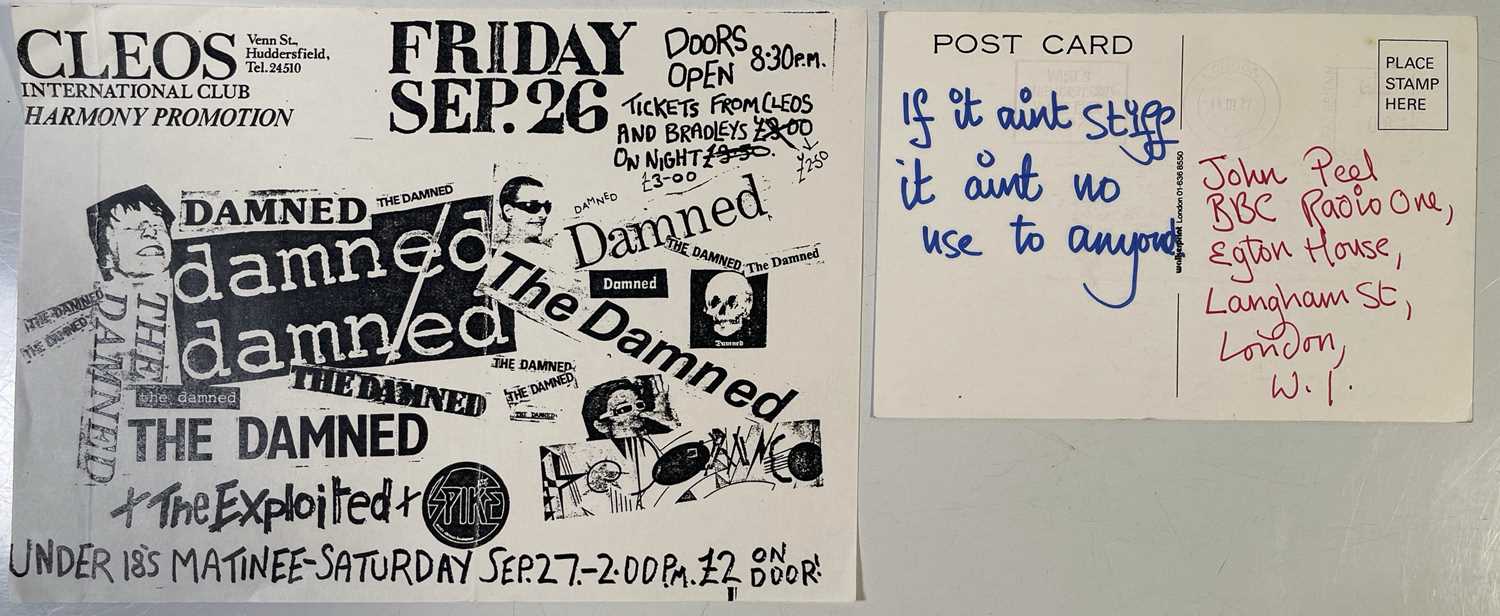 CLEOS
Venn St.,
Huddersfield,
Tel. 24510
INTERNATIONAL CLUB
HARMONY PROMOTION
FRIDAY
SEP. 26
DOORS
OPEN 8:30P.M.
TICKETS FROM CLEOS
AND BRADLEYS £3.00
£2.50
ON NIGHT £3.50.
£3-00
DAMNED
THE DAMNED
damned
damned
DAMNED
Damned
THE DAMNED
The Damned
Damned
The Damned
Damned
THE DAMNED
THE DAMNED
THE DAMNED
the damned
THE DAMNED
THE DAMNED
THE DAMNED
THE DAMNED
THE DAMNED
+ The Exploited +
SPIKE
UNDER 18'S MATINEE-SATURDAY SEP. 27.-2.00P.M. £2 ON DOOR!
POST CARD
PLACE
STAMP
HERE
If it aint stiff
it aint no
use to anyone
walkerprint London 01-636 8550
John Peel
BBC Radio One,
Egton House,
Langham St,
London,
W.1.